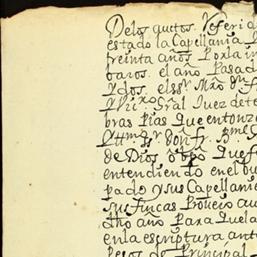 Delos quttos. Referi
estado la Capellania
treinta años Por la in
baros. el año Pasad
ydos. el ssr Mro dn
Juez dete
bras Pias Que entonz
de Dios obpo Que f
entendiendo en el ou
pado y sus Capellani
sus fincas Proueio au
dho año Para Que la
en la escriptura ant
Pesos de Principal